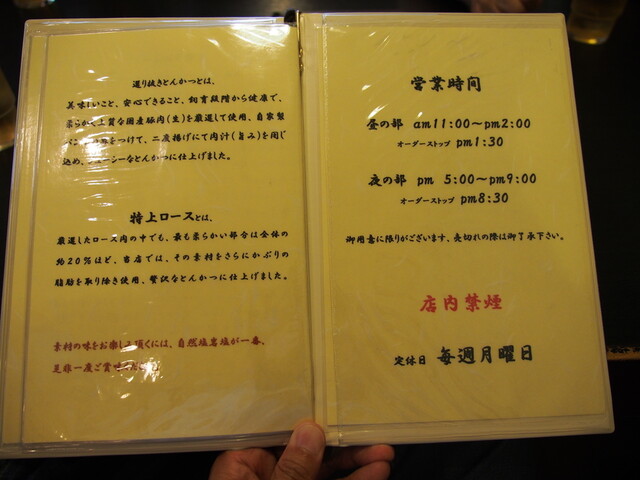 選り抜きとんかつとは、
美味しいこと、安心できること、飼育段階から健康で、
柔らかで上質な国産豚肉(生)を厳選して使用、自家製
パン粉をつけて、二度揚げにて肉汁(旨み)を閉じ
込め、ジューシーなとんかつに仕上げました。
特上ロースとは、
厳選したロース肉の中でも、最も柔らかい部分は全体の
約20%ほど、当店では、その素材をさらにかぶりの
脂肪を取り除き使用、贅沢なとんかつに仕上げました。
素材の味をお楽しみ頂くには、自然塩岩塩が一番、
是非一度ご賞味ください。
営業時間
昼の部 am11:00〜pm2:00
オーダーストップ pm1:30
夜の部 pm 5:00〜pm9:00
オーダーストップ pm8:30
御用意に限りがございます、売切れの際は御了承下さい。
店内禁煙
定休日 毎週月曜日